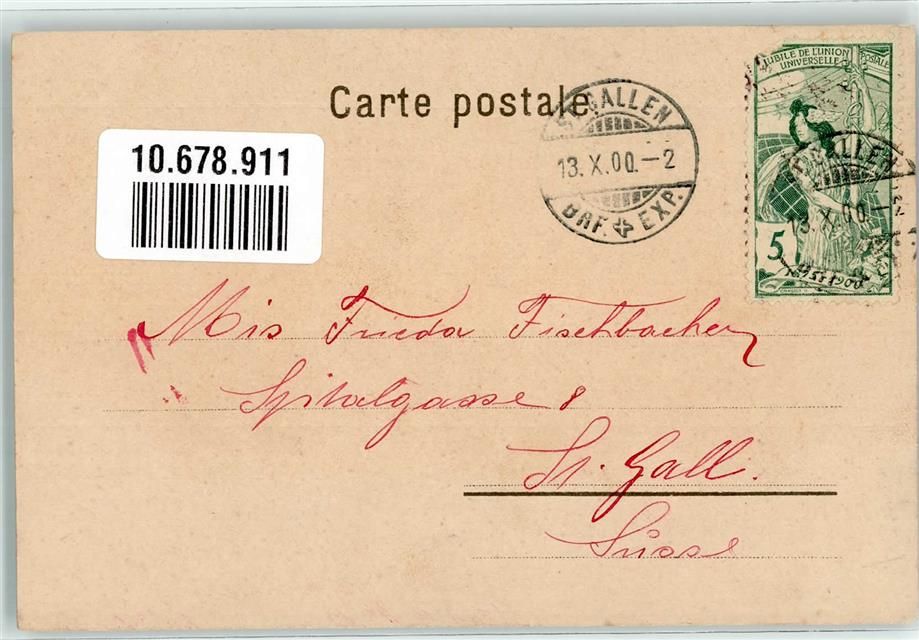 Carte postale
JUBILE DE L'UNION POSTALE
UNIVERSELLE
ST. GALLEN
13. X. 00. – 2
BRF. EXP.
10.678.911
GALLEN
13. X. 00.
5
1900
Mis Frieda Fischbacher
Spitalgasse 8
St. Gall.
Suisse